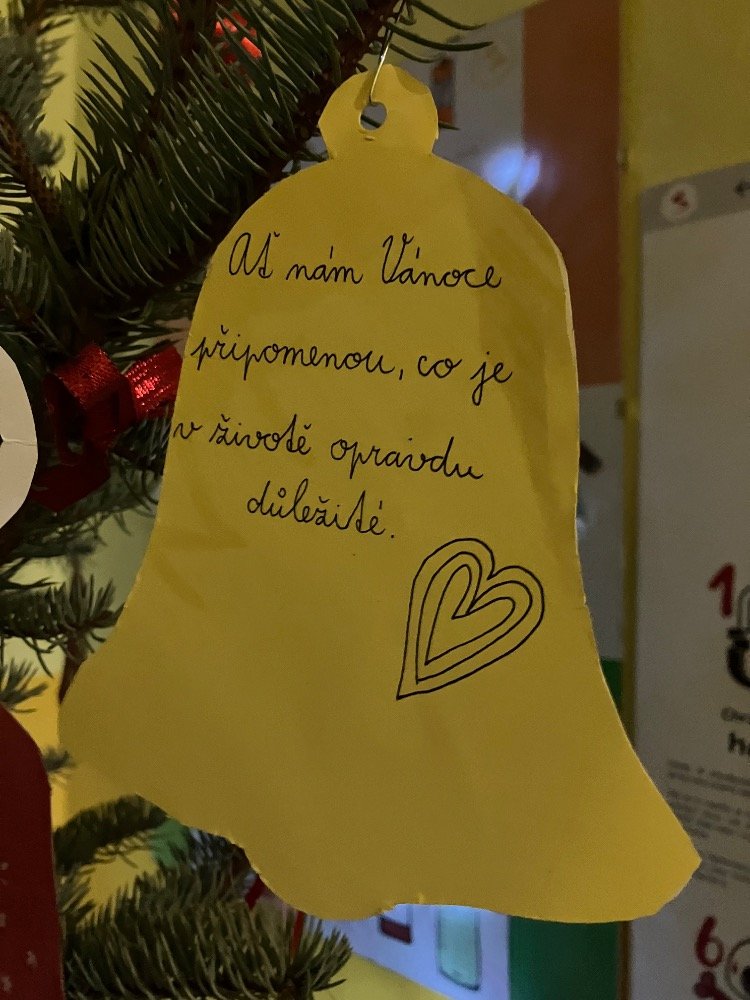 Ať nám Vánoce
připomenou, co je
v životě opravdu
důležité.
1
6